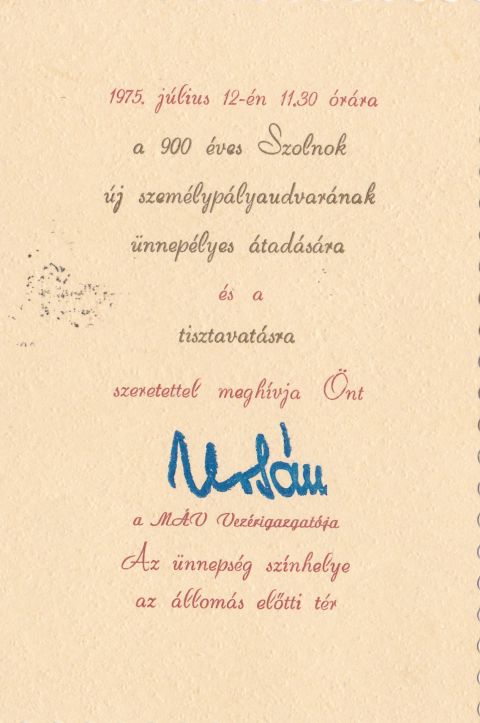 1975. július 12-én 11.30 órára
a 900 éves Szolnok
új személypályaudvarának
ünnepélyes átadására
és a
tisztavatásra
szeretettel meghívja Önt
Urbán
a MÁV Vezérigazgatója
Az ünnepség színhelye
az állomás előtti tér